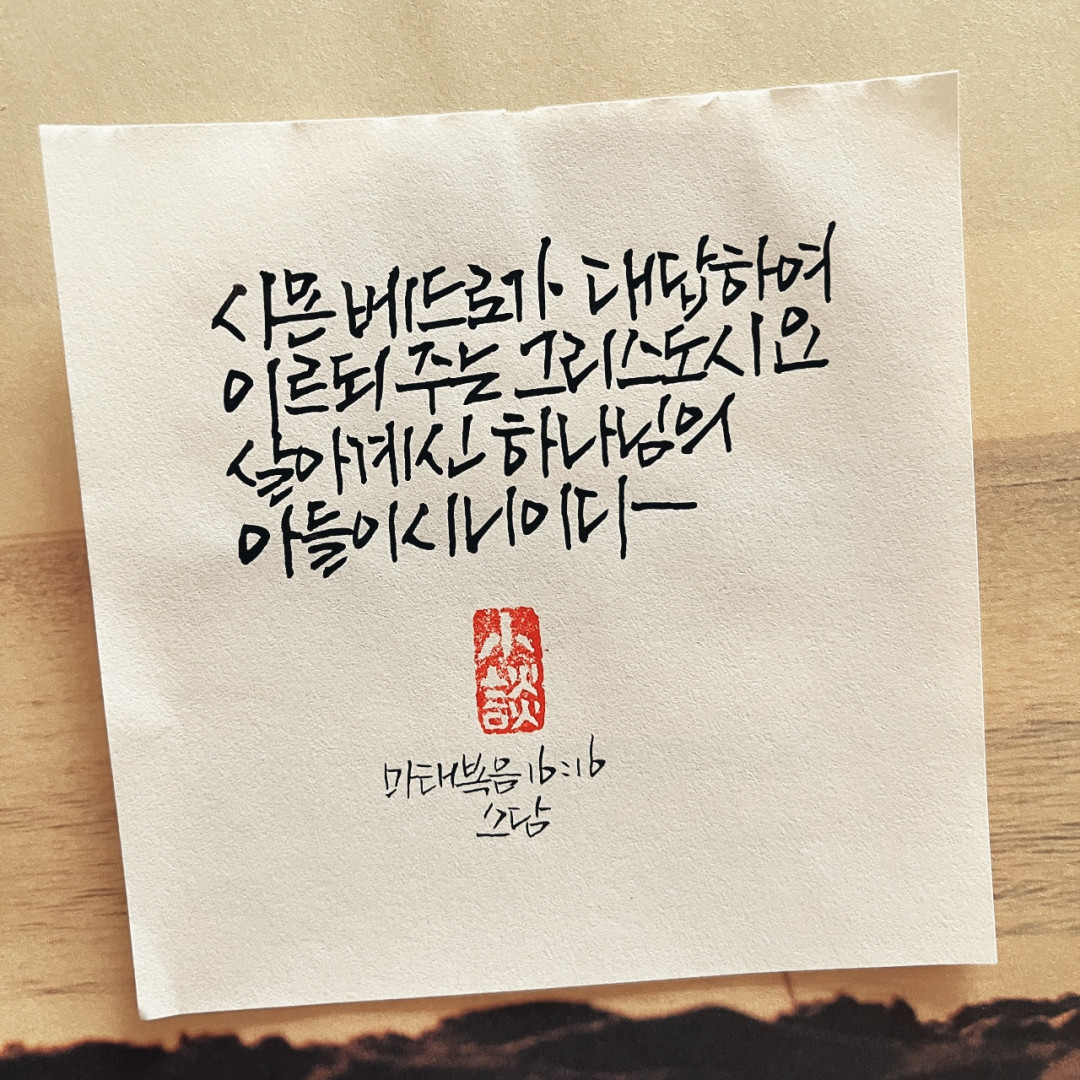 시몬 베드로가 대답하여
이르되 주는 그리스도시요
살아계신 하나님의
아들이시니이다
小談
마태복음 16:16
소담